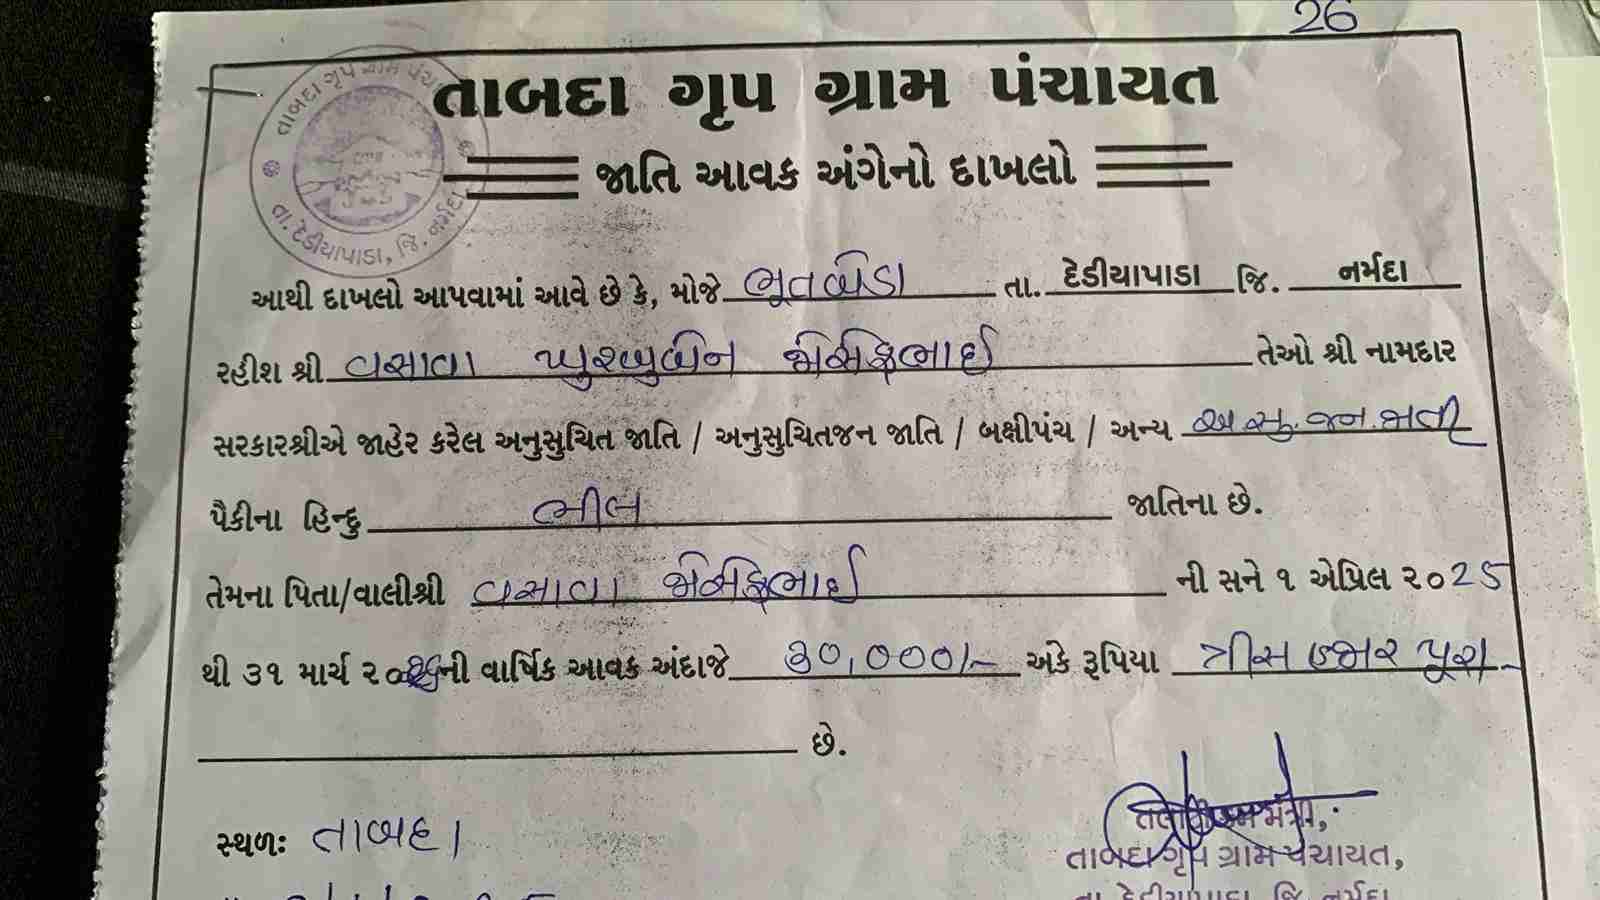 26
તાબદા ગૃપ ગ્રામ પંચાયત
તાબદા ગૃપ ગ્રામ પંચા
તા. દેડીયાપાડા, જિ. નર્મદા
જાતિ આવક અંગેનો દાખલો
આથી દાખલો આપવામાં આવે છે કે, મોજે ભૂતબેડા તા. દેડીયાપાડા જિ. નર્મદા
રહીશ શ્રી વસાવા ખુશ્બુબેન જોસેફભાઈ તેઓ શ્રી નામદાર
સરકારશ્રીએ જાહેર કરેલ અનુસુચિત જાતિ / અનુસુચિતજન જાતિ / બક્ષીપંચ / અન્ય અ.સુ.જન.જાતી
પૈકીના હિન્દુ ભીલ જાતિના છે.
તેમના પિતા/વાલીશ્રી વસાવા જોસેફભાઈ ની સને ૧ એપ્રિલ ૨૦25
થી ૩૧ માર્ચ ૨૦26ની વાર્ષિક આવક અંદાજે 30,000/- અંકે રૂપિયા ત્રીસ હજાર પૂરા
છે.
સ્થળઃ તાબદા
તાબદા ગૃપ ગ્રામ પંચાયત,
તા. દેડીયાપાડા, જિ. નર્મદા